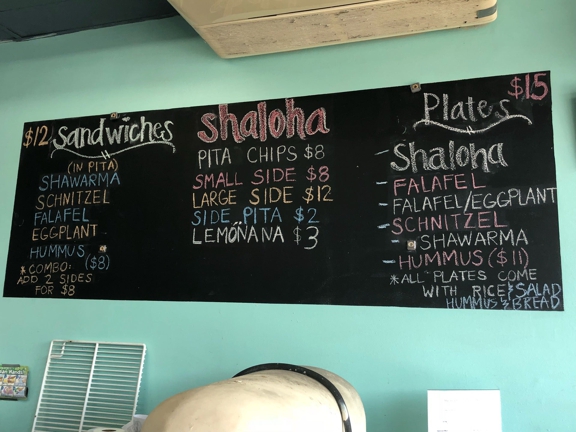 $12 Sandwiches
(IN PITA)
SHAWARMA
SCHNITZEL
FALAFEL
EGGPLANT
HUMMUS ($8)
*COMBO:
ADD 2 SIDES
FOR $8
shaloha
PITA CHIPS $8
SMALL SIDE $8
LARGE SIDE $12
SIDE PITA $2
LEMONANA $3
Plates $15
- Shaloha
- FALAFEL
- FALAFEL/EGGPLANT
- SCHNITZEL
- SHAWARMA
- HUMMUS ($11)
*ALL PLATES COME
WITH RICE & SALAD
HUMMUS & BREAD